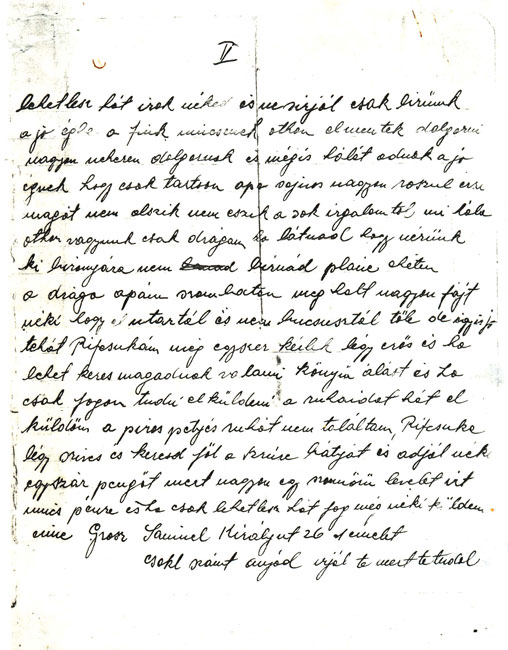 V
lehetlesz hát irok néked és ne sirjál csak birunk
a jó égbe a fiuk nincsenek othon elmentek dolgozni
nagyon neheren dolgoznak és mégis hálát adnak a jó
égnek hogy csak tartson apa sajnos nagyon roszul érzi
magát nem alszik nem eszik a sok irgalomtól mi hála
othon vagyunk csak drágam ha látnád hogy nézünk
ki bizonyára nem birnád pláne chéten
a drága apám szombaton meg halt nagyon fájt
néki hogy elutaztál és nem bucsuztál tőle de
tehát Rifcsukám még egyszer kérlek légy erős és ha
lehet keres magadnak valami könyü álást és ha
csak fogom tudni elküldeni a ruháidat hát el
küldöm a piros petyés ruhát nem találtam, Rifcsuka
légy szives és keresd föl a Bátját és adjál neki
egypár pengőt mert nagyon egy szomorú levelet irt
nincs pénze és ha csak lehetlesz hát fog még néki küldeni
cime Grosz Samuel Királyut 26 1 emelet
csokl szánt anyád irjál te mert te tudod